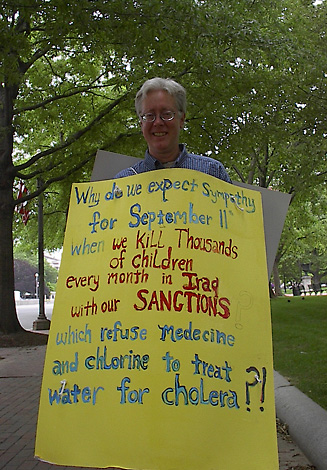 Why do we expect Sympathy
for September 11
when we KiLL Thousands
of children
every month in Iraq
with our SANCTIONS
which refuse medecine
and chlorine to treat
water for cholera?!